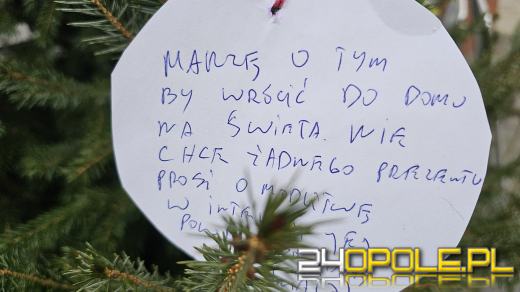 MARZĘ O TYM
BY WRÓCIĆ DO DOMU
NA ŚWIĘTA. NIE
CHCĘ ŻADNEGO PREZENTU
PROSI O MODLITWĘ
W
JEJ
24OPOLE.PL